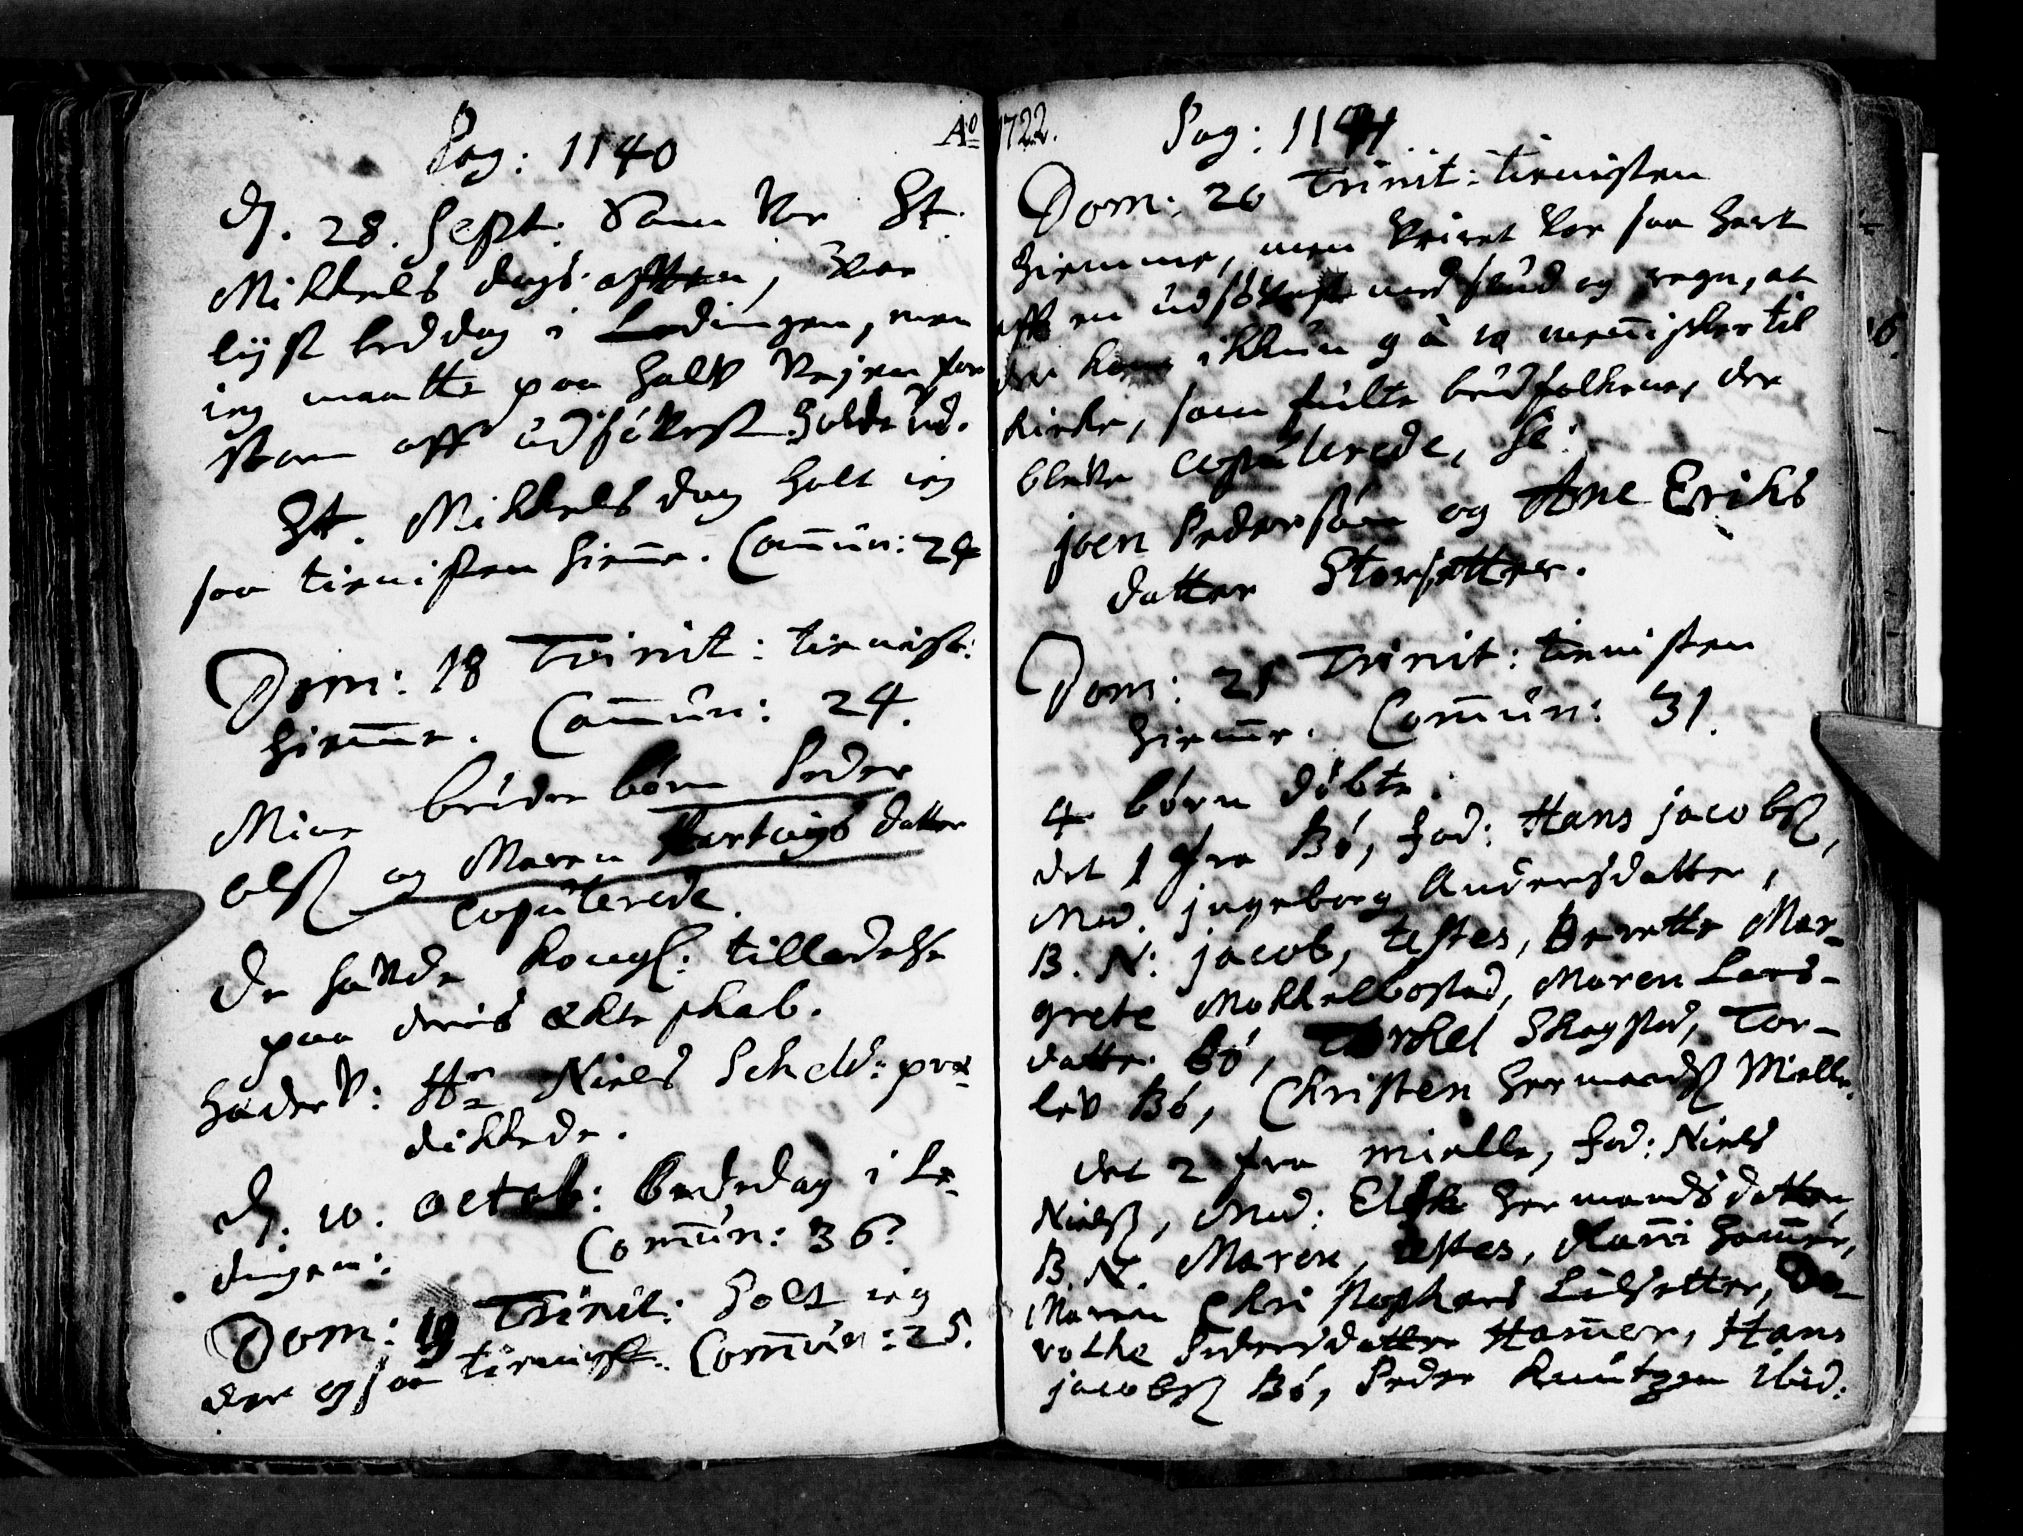 Pag: 1140
Aō
d. 28. Sept: som var St.
Mikkels dags aften, var
lyst beddag i Lødingen, men
ieg maatte paa halv Vejen for
storm aff üdsövest holde ind.
St. Mikkels dag holt ieg
saa tienisten hiem̄e. Com̄ūn: 24
Dom: 18 Trinit: tienist:
hiem̄e. Com̄ūn: 24.
Mine brüdebörn Peder
olß og Maren Hartvigs datter
copūlerede.
De havde Kongl: tilladelse
paa deris ækteskab.
Haderv: Hr Niels Scheld: præ-
dikkede.
d. 10. octob: bededag i Lø-
dingen: Com̄ūn: 36?
Dom: 19 Trinit: holt ieg
der ogsaa tienist. Com̄ūn: 25.
1722.
Pag: 1141
Dom: 20 Trinit: tienisten
hiemme, men veiret var saa hart
aff en üdsövest med slüd og regn, at
der kom ikkün 9 à 10 men̄isker til
kirke, som fülte brüdfolkene, der
bleve copūlerede, Sc:
joen Pedersön og Ane Eriks
datter Storsetter.
Dom: 21 Trinit: tienisten
hiem̄e. Com̄ūn: 31.
4 börn döbte:
det 1 fra Bö, fad: Hans jacobß,
Mod. jngeborg Andersdatter,
B. N: jacob, testes, Berette Mar-
grete Mokkelbostad, Maren Lars-
datter Bö, Torkel Skagstad, Tor-
lev Bö, Christen Hermandß Mielle.
det 2 fra mielle, fad: Niels
Nielß, Mod: Else Hermandsdatter,
B. N. Maren, testes, Kan̄i Ham̄er,
Maren Christophers Lilsetter, Do-
rothe Pedersdatter Ham̄er, Hans
jacobß Bö, Peder Knūtzen ibid: